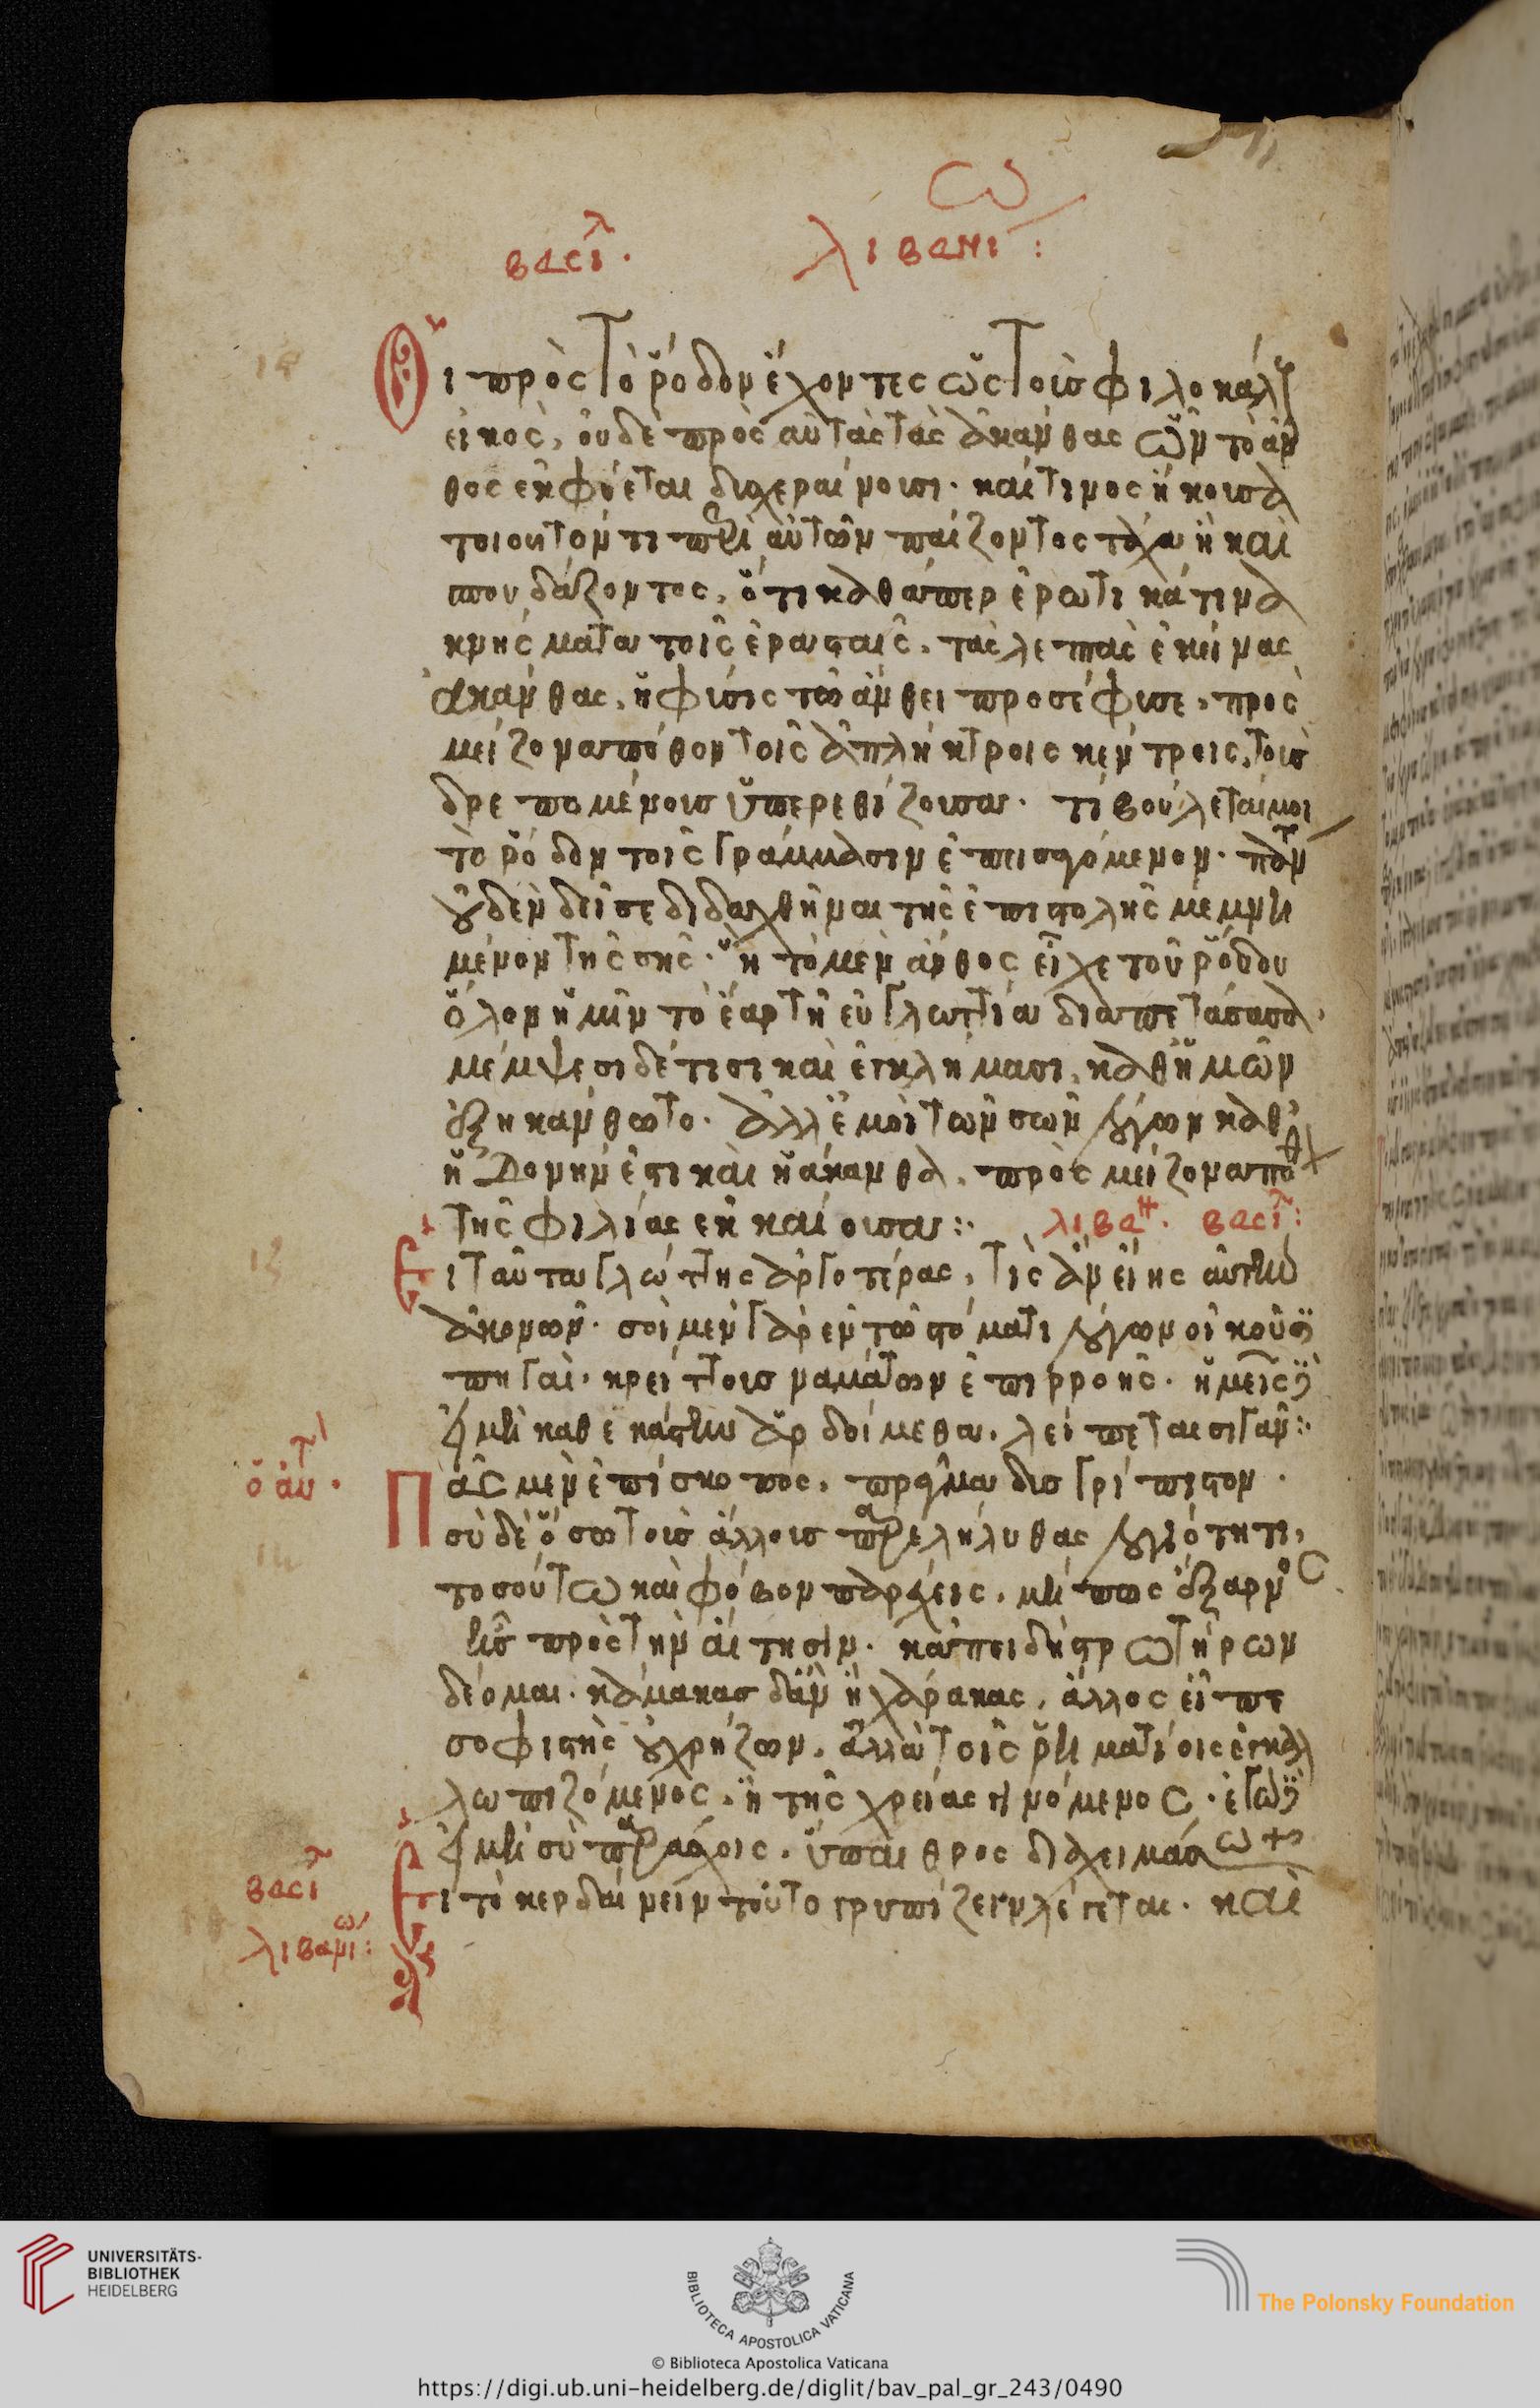 βασιλ. λιβανίω:
Οἱ πρὸς τὸ ῥόδον ἔχοντες ὡς τοὺς φιλοκάλους
εἰκὸς, οὐδὲ πρὸς αὐτὰς τὰς ἀκάνθας ὧν τὸ ἄν
θος ἐκφύεται δυσχεραίνουσι. καί τινος ἤκουσα
τοιοῦτόν τι περὶ αὐτῶν παίζοντος τάχα ἢ καὶ
σπουδάζοντος, ὅτι καθάπερ ἐρωτικά τινα
κνήσματα τοῖς ἐρασταῖς, τὰς λεπτὰς ἐκείνας
ἀκάνθας, ἡ φύσις τῷ ἄνθει προσέφυσε, πρὸς
μείζονα πόθον τοῖς ἀπλήκτροις κέντροις, τοὺς
δρεπομένους ὑπερεθίζουσα. τί βούλεταί μοι
τὸ ῥόδον τοῖς γράμμασιν ἐπεισαγόμενον. πάντως
οὐδὲν δεῖ σε διδαχθῆναι τῆς ἐπιστολῆς μεμνη
μένον τῆς σῆς. ἣ τὸ μὲν ἄνθος εἶχε τοῦ ῥόδου
ὅλον ἡμῖν τὸ ἔαρ τῇ εὐγλωττίᾳ διαπετάσασα.
μέμψεσι δέ τισι καὶ ἐγκλήμασι, καθ' ἡμῶν
ἐξηκάνθωτο. ἀλλ' ἐμοὶ τῶν σῶν λόγων καθ'
ἡδονήν ἐστι καὶ ἡ ἄκανθα, πρὸς μείζονα πόθον
τῆς φιλίας ἐκκαίουσα: λιβαν. βασιλ:
Εἰ ταῦτα γλώττης ἀργοτέρας, τίς ἂν εἴης αὐτὴν
ἀκονῶν. σοὶ μὲν γὰρ ἐν τῷ στόματι λόγων οἰκοῦσι
πηγαὶ, κρείττους ναμάτων ἐπιρροῆς. ἡμεῖς δὲ
εἰ μὴ καθ' ἑκάστην ἀρδοίμεθα, λείπεται σιγᾶν:
ὁ αὐτ.
Πᾶς μὲν ἐπίσκοπος, πρᾶγμα δυσγρίπιστον.
σὺ δὲ ὅσῳ τοὺς ἄλλους παρελήλυθας λογιότητι,
τοσούτῳ καὶ φόβον παρέχεις, μή πως ἔξαρνος
ᾖς πρὸς τὴν αἴτησιν. κἀπειδὴ στρωτήρων
δέομαι. κάμακας δ' ἂν ἢ χάρακας, ἄλλος εἶπε
σοφιστὴς οὐ χρῄζων, ἀλλὰ τοῖς ῥηματίοις ἐγκαλ
λωπιζόμενος, ἢ τῆς χρείας γινόμενος. ἐγὼ δὲ
εἰ μὴ σὺ παράσχοις, ὕπαιθρος διαχειμάσω +
βασιλ λιβανίω:
Εἰ τὸ κερδαίνειν τοῦτο γριπίζειν λέγεται. καὶ
UNIVERSITÄTS-
BIBLIOTHEK
HEIDELBERG
BIBLIOTECA APOSTOLICA VATICANA
The Polonsky Foundation
© Biblioteca Apostolica Vaticana
https://digi.ub.uni-heidelberg.de/diglit/bav_pal_gr_243/0490